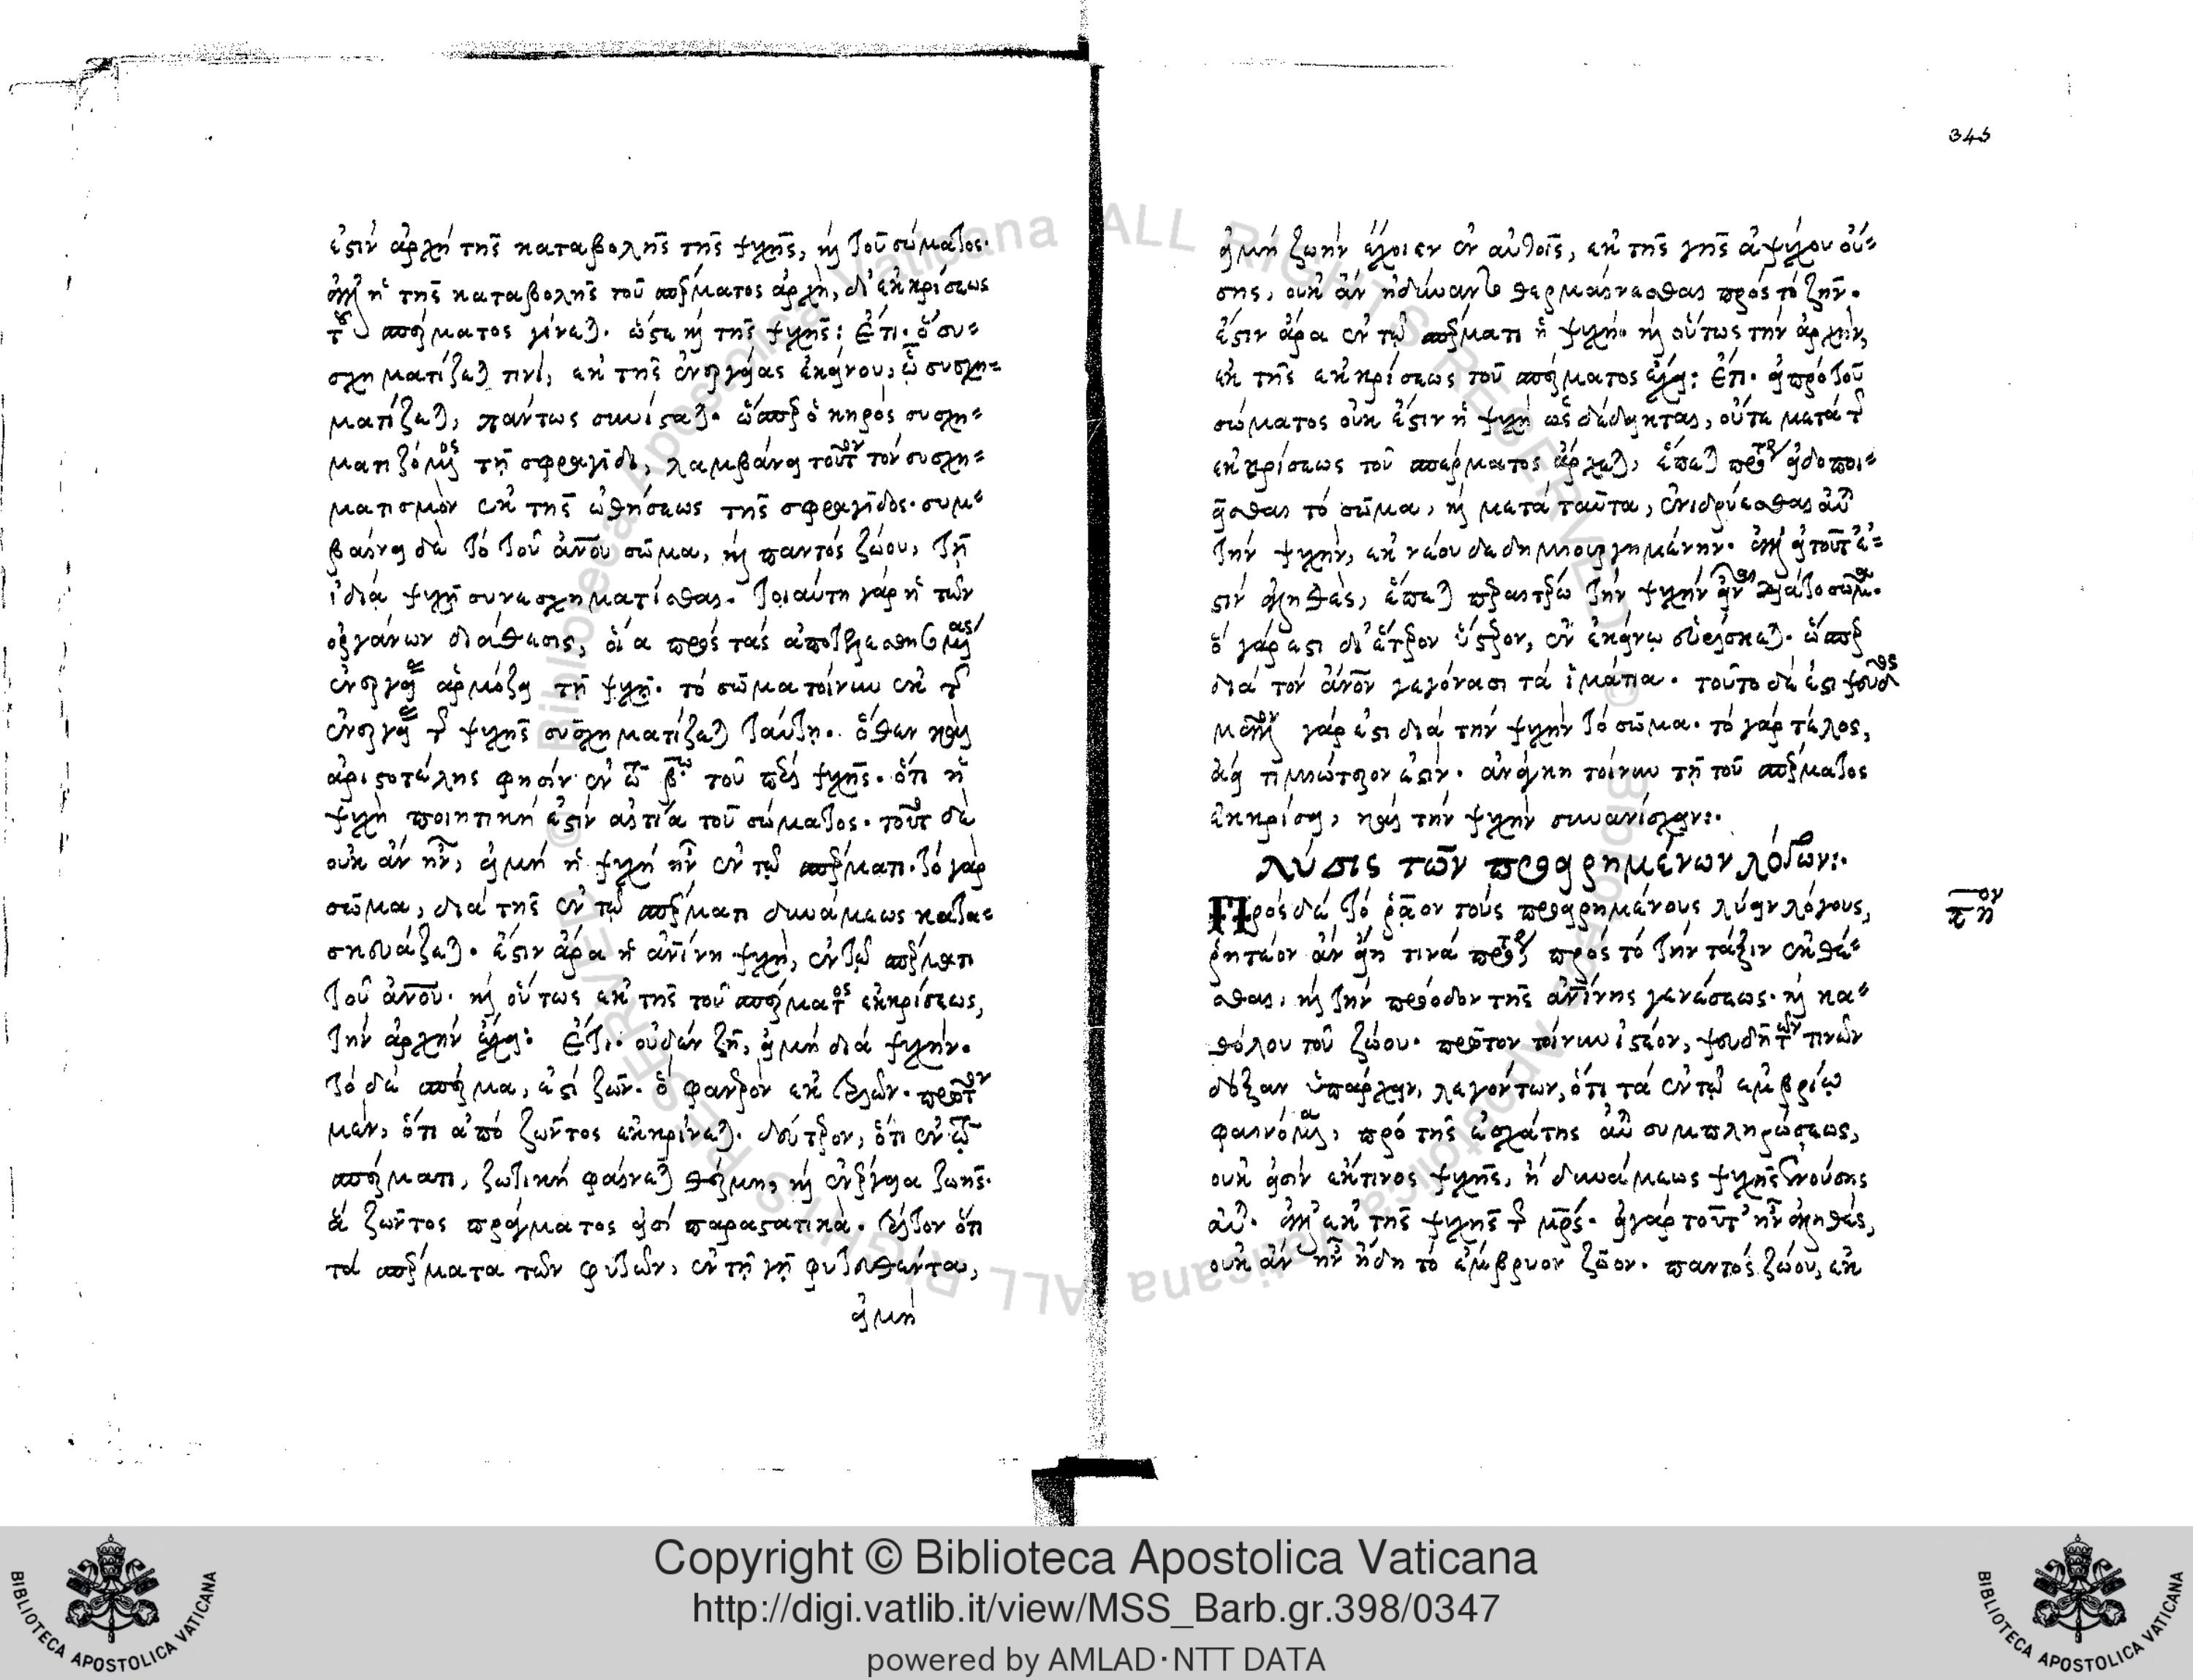 345
ἐστὶν ἀρχὴ τῆς καταβολῆς τῆς ψυχῆς, καὶ τοῦ σώματος·
ἀλλ' ἡ τῆς καταβολῆς τοῦ σπέρματος ἀρχὴ, δι' ἐκκρίσεως
τοῦ σπέρματος γίνεται. ὥστε καὶ τῆς ψυχῆς: Ἔτι. ὃ συ-
σχηματίζεταί τινι, ἐκ τῆς ἐνεργείας ἐκείνου, ᾧ συσχη-
ματίζεται, πάντως συνίσταται. ὥσπερ ὁ κηρὸς συσχη-
ματιζόμενος τῇ σφραγῖδι, λαμβάνει τοῦτον τὸν συσχη-
ματισμὸν ἐκ τῆς ὠθήσεως τῆς σφραγῖδος. συμ-
βαίνει δὲ τὸ τοῦ ἀνου σῶμα, καὶ παντὸς ζώου, τῇ
ἰδίᾳ ψυχῇ συνεσχηματίσθαι. τοιαύτη γὰρ ἡ τῶν
ὀργάνων διάθεσις, οἵα πρὸς τὰς ἀποτελεσθησομένας
ἐνεργείας ἁρμόζει τῇ ψυχῇ. τὸ σῶμα τοίνυν ἐκ τῆς
ἐνεργείας τῆς ψυχῆς συσχηματίζεται ταύτῃ. ὅθεν καὶ
ἀριστοτέλης φησὶν ἐν τῷ βῳ τοῦ περὶ ψυχῆς. ὅτι ἡ
ψυχὴ ποιητική ἐστιν αἰτία τοῦ σώματος. τοῦτο δὲ
οὐκ ἂν ἦν, εἰ μὴ ἡ ψυχὴ ἦν ἐν τῷ σπέρματι. τὸ γὰρ
σῶμα, διὰ τῆς ἐν τῷ σπέρματι δυνάμεως κατα-
σκευάζεται. ἔστιν ἄρα ἡ ἀνίνη ψυχὴ, ἐν τῷ σπέρματι
τοῦ ἀνου. καὶ οὕτως ἐκ τῆς τοῦ σπέρματος ἐκκρίσεως,
τὴν ἀρχὴν ἔχει: Ἔτι. οὐδὲν ζῇ, εἰ μὴ διὰ ψυχήν.
τὸ δὲ σπέρμα, ἐστὶ ζῶν. ὃ φανερὸν ἐκ τριῶν. πρῶτον
μὲν, ὅτι ἀπὸ ζῶντος ἐκκρίνεται. δεύτερον, ὅτι ἐν τῷ
σπέρματι, ζωτικὴ φαίνεται θέρμη, καὶ ἐνέργεια ζωῆς.
ἃ ζῶντος πράγματος εἰσὶ παραστατικά. τρίτον ὅτι
τὰ σπέρματα τῶν φυτῶν, ἐν τῇ γῇ φυτευθέντα,
εἰ μὴ
εἰ μὴ ζωὴν ἔχοιεν ἐν αὐτοῖς, ἐκ τῆς γῆς ἀψύχου οὔ-
σης, οὐκ ἂν ἠδύναντο θερμαίνεσθαι πρὸς τὸ ζῆν.
ἔστιν ἄρα ἐν τῷ σπέρματι ἡ ψυχὴ. καὶ οὕτως τὴν ἀρχὴν,
ἐκ τῆς ἐκκρίσεως τοῦ σπέρματος ἔχει: Ἔτι. εἰ πρὸ τοῦ
σώματος οὐκ ἔστιν ἡ ψυχὴ ὡς δέδεικται, οὔτε μετὰ τῆς
ἐκκρίσεως τοῦ σπέρματος ἄρχεται, ἕπεται πρότερον εἰδοποι-
εῖσθαι τὸ σῶμα, καὶ μετὰ ταῦτα, ἐνιδρύεσθαι αὐτῷ
τὴν ψυχὴν, ἐκ νέου δεδημιουργημένην. ἀλλ' εἰ τοῦτ' ἐ-
στὶν ἀληθὲς, ἕπεται περαιτέρω τὴν ψυχὴν εἶναι διὰ τὸ σῶμα.
ὃ γάρ ἐστι δι' ἕτερον ὕστερον, ἐν ἐκείνῳ εὑρίσκεται. ὥσπερ
διὰ τὸν ἄνον γεγόνασι τὰ ἱμάτια. τοῦτο δέ ἐστι ψευδές
μᾶλλον γάρ ἐστι διὰ τὴν ψυχὴν τὸ σῶμα. τὸ γὰρ τέλος,
ἀεὶ τιμιώτερόν ἐστιν. ἀνάγκη τοίνυν τῇ τοῦ σπέρματος
ἐκκρίσει, καὶ τὴν ψυχὴν συνανίσχειν:.
λύσις τῶν προειρημένων λόγων:.
Πρὸς δὲ τὸ ῥᾷον τοὺς προειρημένους λύειν λόγους,
ῥητέον ἂν εἴη τινὰ πρότερον πρὸς τὸ τὴν τάξιν ἐκθέ-
σθαι, καὶ τὴν πρόοδον τῆς ἀνίνης γενέσεως. καὶ κα-
θόλου τοῦ ζώου. πρῶτον τοίνυν ἰστέον, ψευδῆ τῶν τινῶν
δόξαν ὑπάρχειν, λεγόντων, ὅτι τὰ ἐν τῷ ἐμβρύῳ
φαινόμενα, πρὸ τῆς ἐσχάτης αὐτοῦ συμπληρώσεως,
οὐκ εἰσὶν ἔκ τινος ψυχῆς, ἢ δυνάμεως ψυχῆς ἐνούσης
αὐτῷ. ἀλλ' ἐκ τῆς ψυχῆς τῆς μρς. εἰ γὰρ τοῦτ' ἦν ἀληθές,
οὐκ ἂν ἦν ἤδη τὸ ἔμβρυον ζῶον. παντὸς ζώου, ἐκ
Copyright © Biblioteca Apostolica Vaticana
http://digi.vatlib.it/view/MSS_Barb.gr.398/0347
powered by AMLAD·NTT DATA
BIBLIOTECA APOSTOLICA VATICANA
BIBLIOTECA APOSTOLICA VATICANA